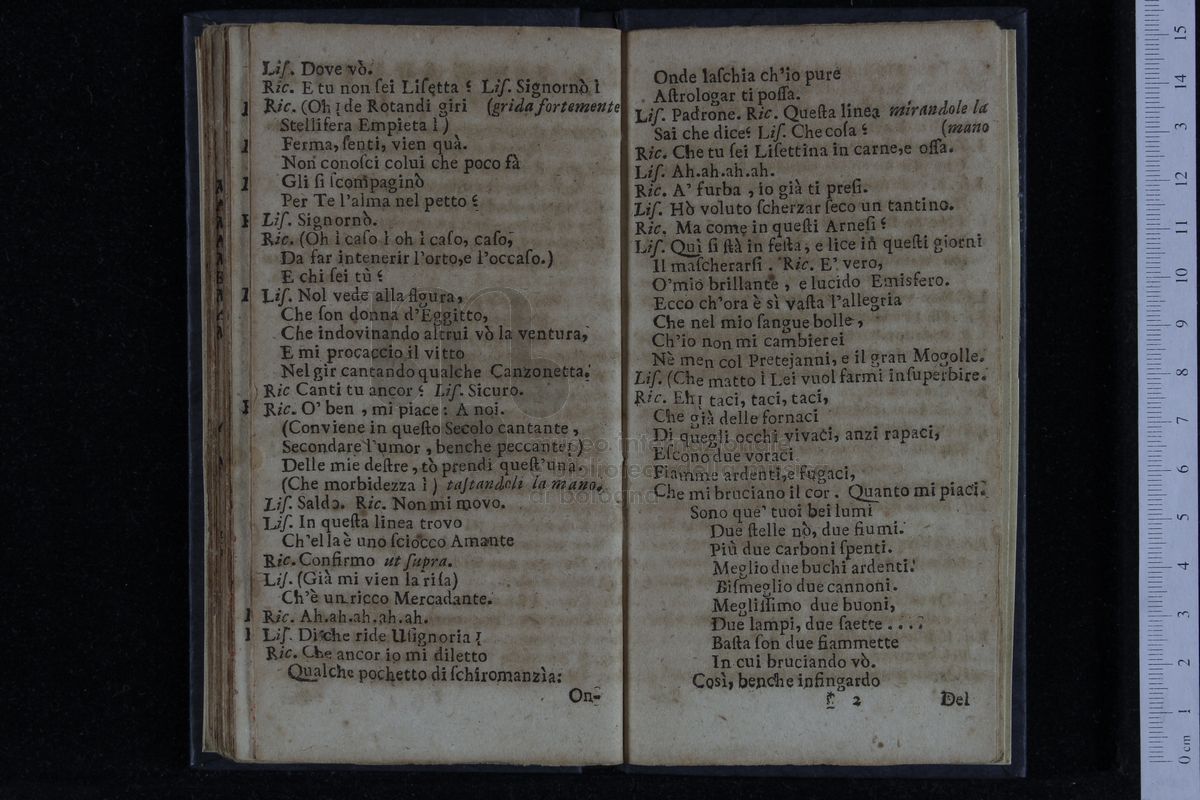 Liſ. Dove vò.
Ric. E tu non ſei Liſetta? Liſ. Signornò!
Ric. (Oh! de Rotandi giri (grida fortemente
Stellifera Empieta!)
Ferma, ſenti, vien quà.
Non conoſci colui che poco fà
Gli ſi ſcompaginò
Per Te l'alma nel petto?
Liſ. Signornò.
Ric. (Oh! caſo! oh! caſo, caſo,
Da far intenerir l'orto, e l'occaſo.)
E chi ſei tù?
Liſ. Nol vede alla figura,
Che ſon donna d'Eggitto,
Che indovinando altrui vò la ventura,
E mi procaccio il vitto
Nel gir cantando qualche Canzonetta.
Ric Canti tu ancor? Liſ. Sicuro.
Ric. O' ben, mi piace: A noi.
(Conviene in queſto Secolo cantante,
Secondare l'umor, benche peccante!)
Delle mie deſtre, tò prendi queſt'una.
(Che morbidezza!) taſtandoli la mano.
Liſ. Saldo. Ric. Non mi movo.
Liſ. In queſta linea trovo
Ch'ella è uno ſciocco Amante
Ric. Confirmo ut ſupra.
Liſ. (Già mi vien la riſa)
Ch'è un ricco Mercadante.
Ric. Ah.ah.ah.ah.ah.
Liſ. Di che ride Uſignoria?
Ric. Che ancor io mi diletto
Qualche pochetto di ſchiromanzìa:
On-
Onde laſchia ch'io pure
Aſtrologar ti poſſa.
Liſ. Padrone. Ric. Queſta linea mirandole la
Sai che dice? Liſ. Che coſa? (mano
Ric. Che tu ſei Liſettina in carne, e oſſa.
Liſ. Ah.ah.ah.ah.
Ric. A' furba, io già ti preſi.
Liſ. Hò voluto ſcherzar ſeco un tantino.
Ric. Ma come in queſti Arneſi?
Liſ. Quì ſi ſtà in feſta, e lice in queſti giorni
Il maſcherarſi. Ric. E' vero,
O' mio brillante, e lucido Emisfero.
Ecco ch'ora è sì vaſta l'allegria
Che nel mio ſangue bolle,
Ch'io non mi cambierei
Nè men col Pretejanni, e il gran Mogolle.
Liſ. (Che matto! Lei vuol farmi inſuperbire.
Ric. Eh! taci, taci, taci,
Che già delle fornaci
Di quegli occhi vivaci, anzi rapaci,
Eſcono due voraci
Fiamme ardenti, e fugaci,
Che mi bruciano il cor. Quanto mi piaci.
Sono que' tuoi bei lumi
Due ſtelle nò, due fiumi.
Più due carboni ſpenti.
Meglio due buchi ardenti.
Biſmeglio due cannoni.
Megliſſimo due buoni,
Due lampi, due ſaette....
Baſta ſon due fiammette
In cui bruciando vò.
Così, benche infingardo
2 Del
museo internazionale
biblioteca della musica
di bologna
0 cm 1 2 3 4 5 6 7 8 9 10 11 12 13 14 15